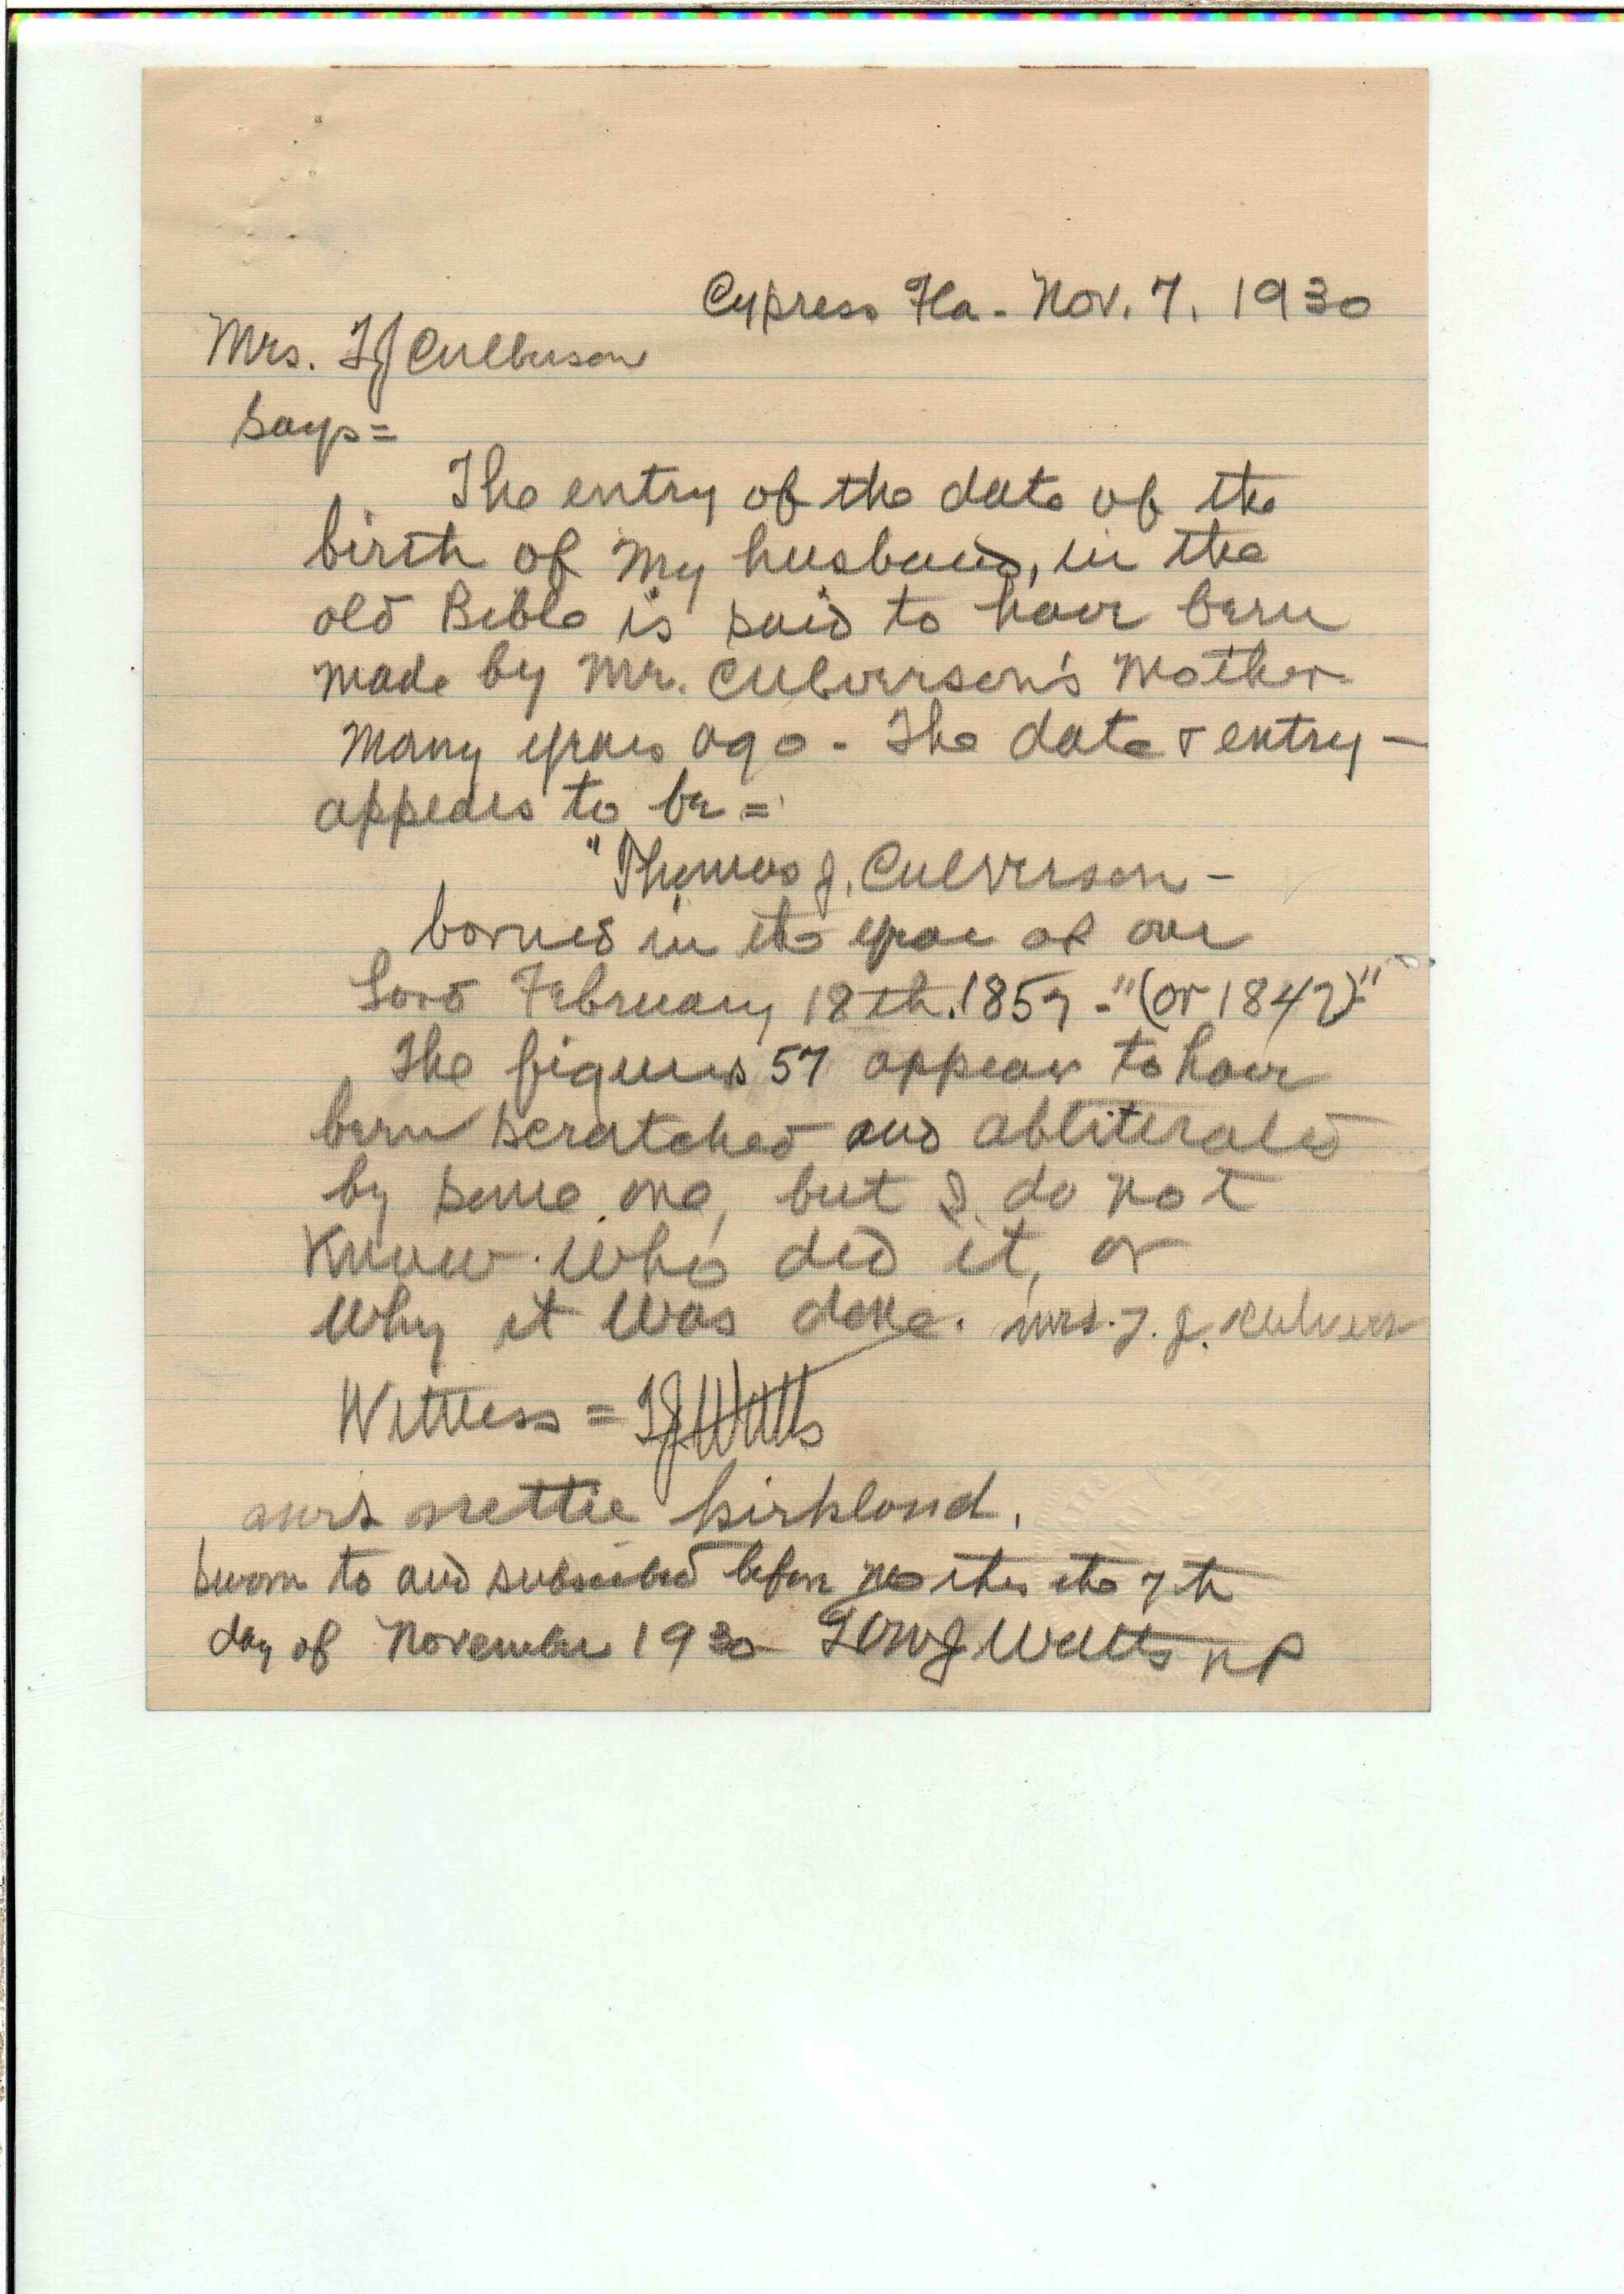 Cypress Fla. Nov. 7. 1930
Mrs. TJ Culberson
Says=
The entry of the date of the
birth of my husband, in the
old Bible is said to have been
made by Mr. Culverson's mother
many years ago. The date & entry -
appears to be =
"Thomas J. Culverson -
borned in the year of our
Lord February 18th. 1857 - "(or 1847)"
The figures 57 appear to have
been scratched and abliterated
by some one, but I do not
know who did it, or
why it was done. Mrs. T. J. Kulvers
Witness = TJ Watts
Mrs Nettie Kirkland.
Sworn to and subscribed before me this the 7th
day of November 1930 Watts NP